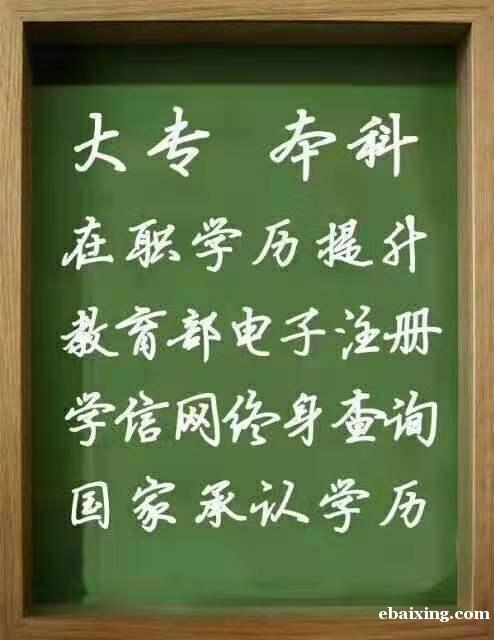 大专 本科
在职学历提升
教育部电子注册
学信网终身查询
国家承认学历
ebaixing.com